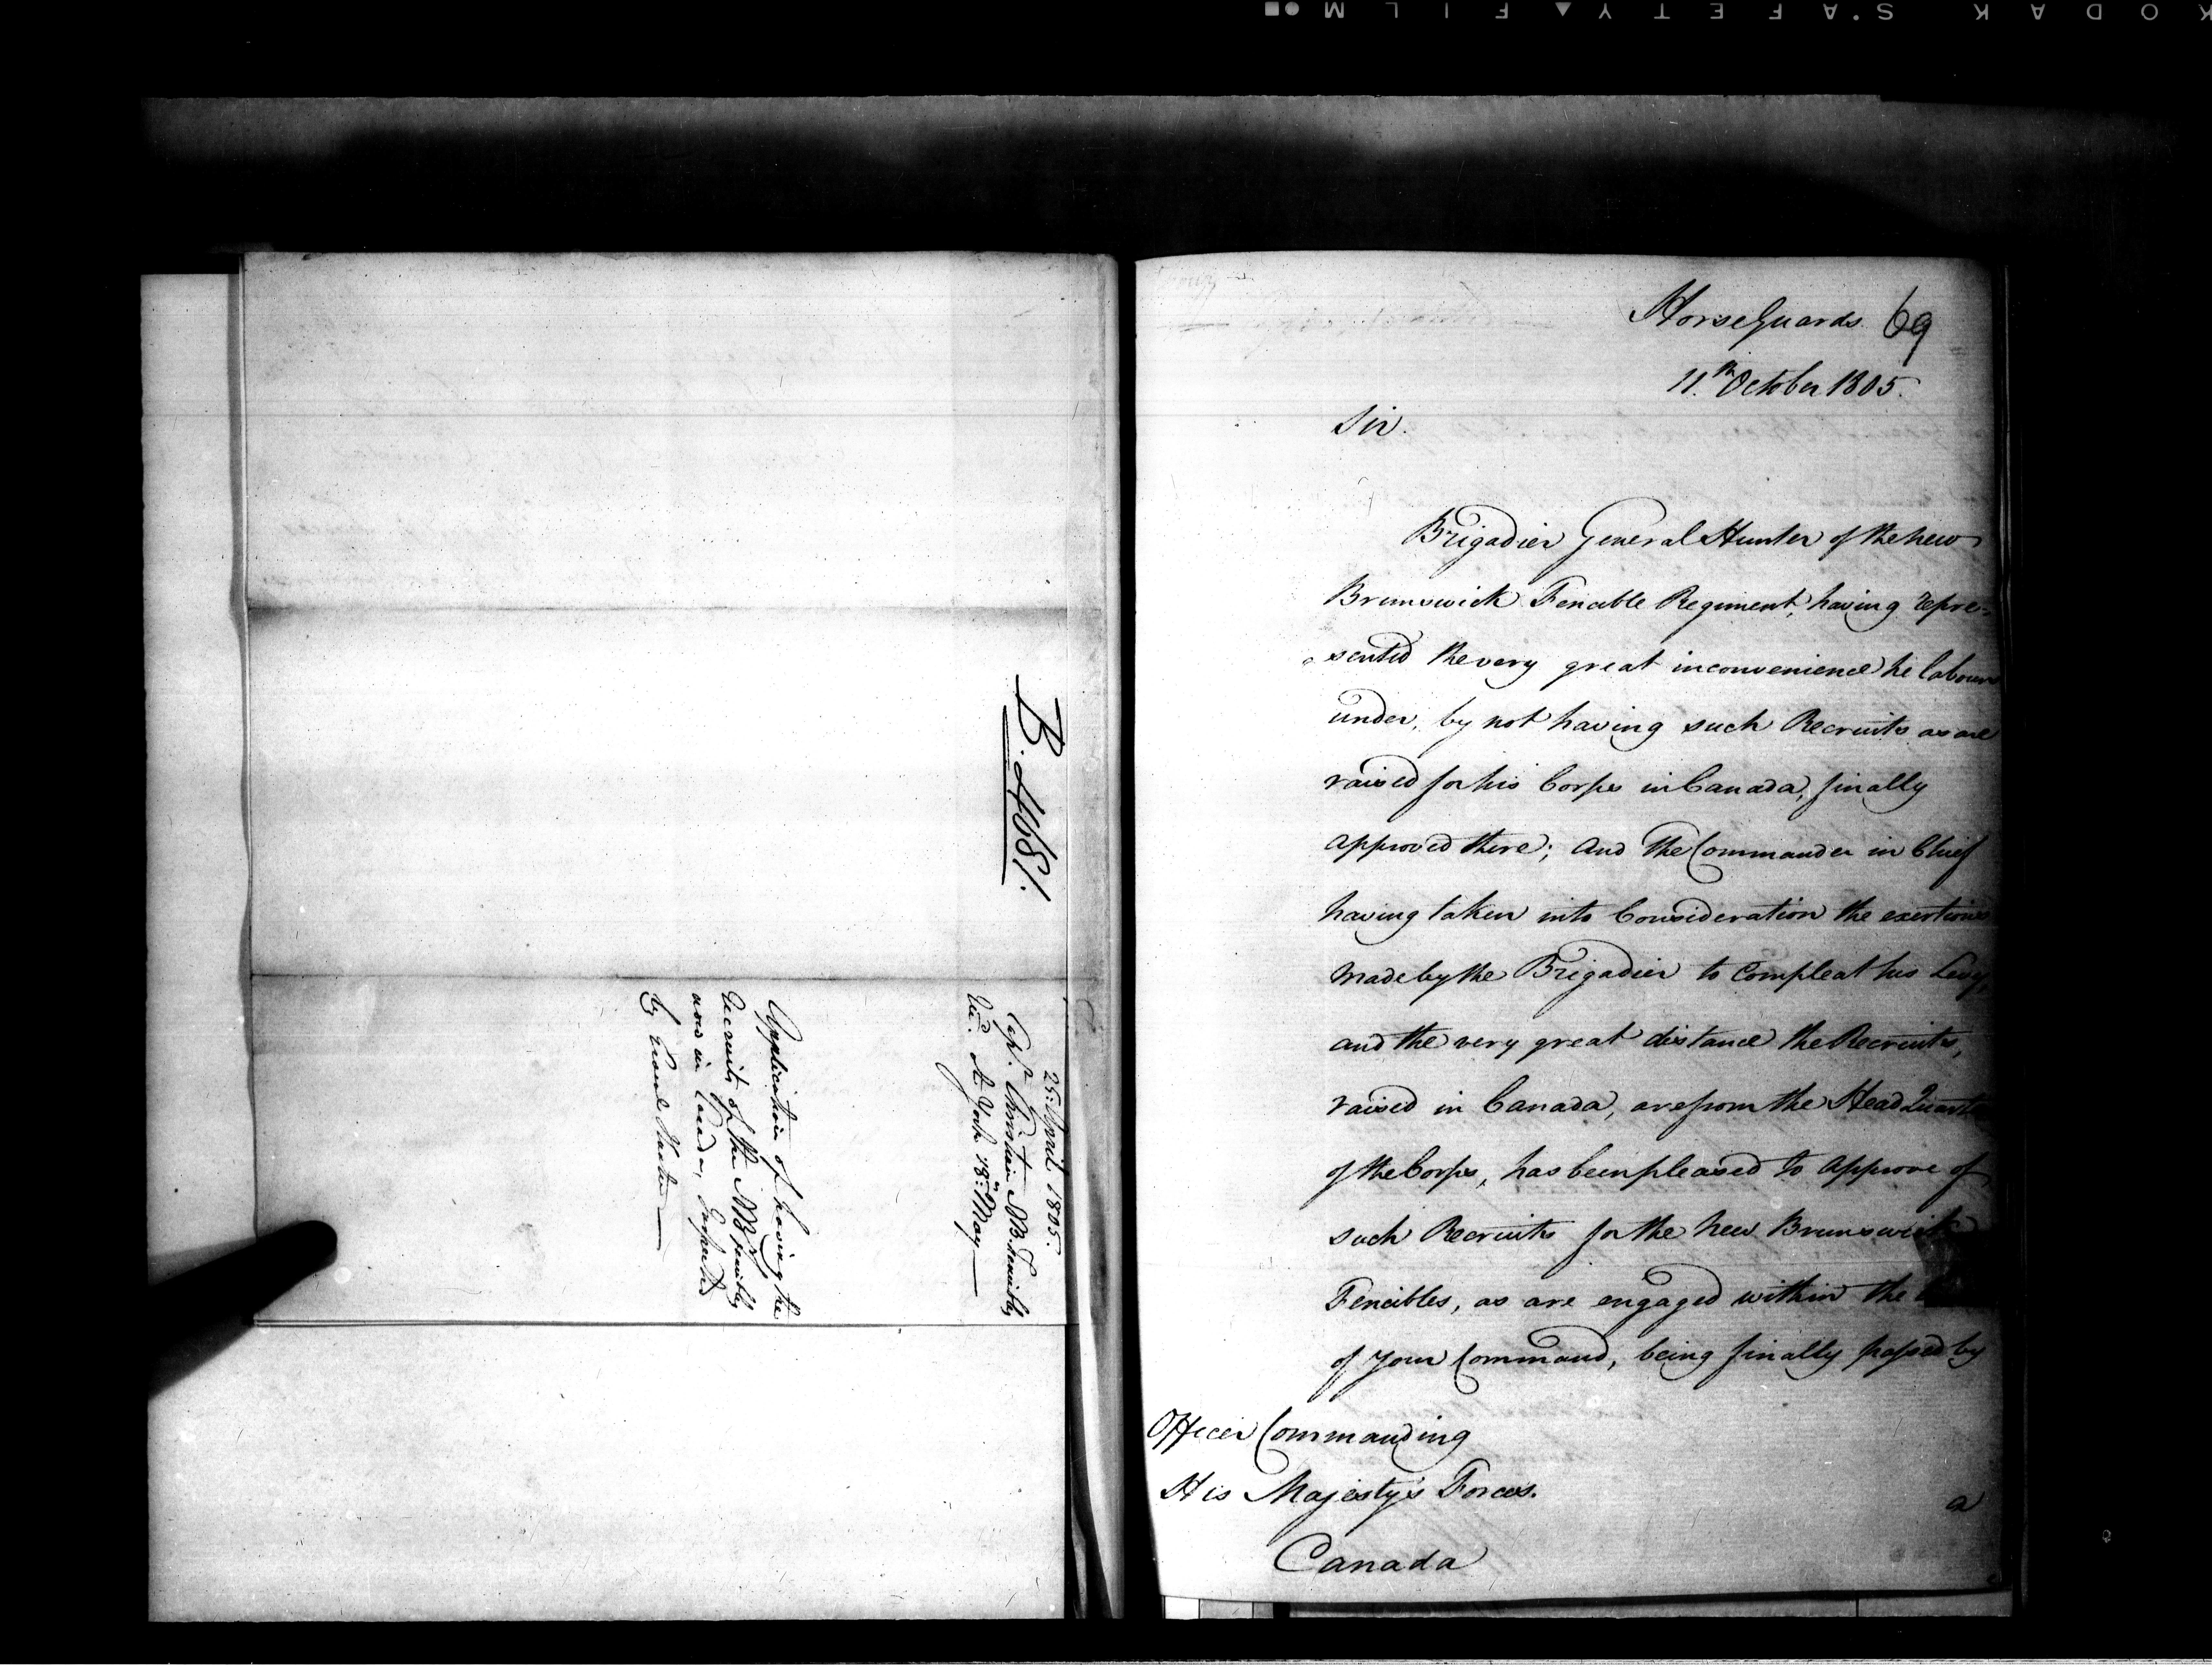 KODAK S'AFETY FILM
B. 4681.
25: April 1805.
Capt. Christian NB. Fencibles
Recd. At York 18: May
Application of having the
Recruits of the NB Fencibles
now in Canada, Inspected
by Genl. Hunter
Horse Guards 69
11th October 1805.
Sir.
Brigadier General Hunter of the New
Brunswick Fencible Regiment, having repre=
sented the very great inconvenience he labours
under, by not having such Recruits as are
raised for his Corps in Canada, finally
approved there; and the Commander in Chief
having taken into Consideration the exertions
made by the Brigadier to Compleat his Levy,
and the very great distance the Recruits,
raised in Canada, are from the Head Quarters
of the Corps, has been pleased to approve of
such Recruits for the New Brunswick
Fencibles, as are engaged within the
of your Command, being finally passed by
Officer Commanding
His Majesty's Forces.
Canada
a